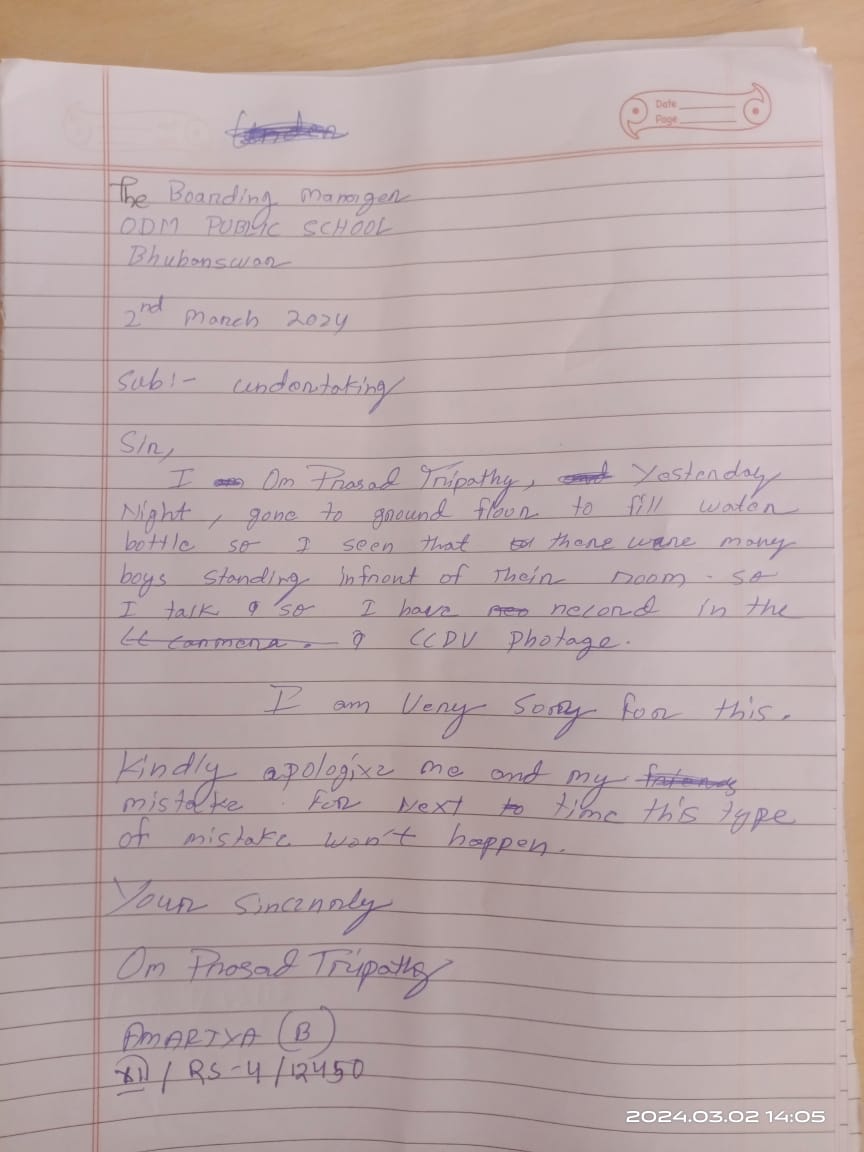 Date
Page
The Boarding Manager
ODM PUBLIC SCHOOL
Bhubanswar
2nd March 2024
Sub:- undertaking
Sir,
I am Om Prasad Tripathy, and Yesterday
Night, gone to ground floor to fill water
bottle so I seen that there were many
boys standing infront of Their room. so
I talk so I have record in the
CC canmera. CCDV Photage.
I am Very Sorry for this.
Kindly apologize me and my friends
mistake. For Next to time this type
of mistake won't happen.
Your Sincerely
Om Prasad Tripathy
AMARTYA (B)
XII / RS-4 / 12450
2024.03.02 14:05